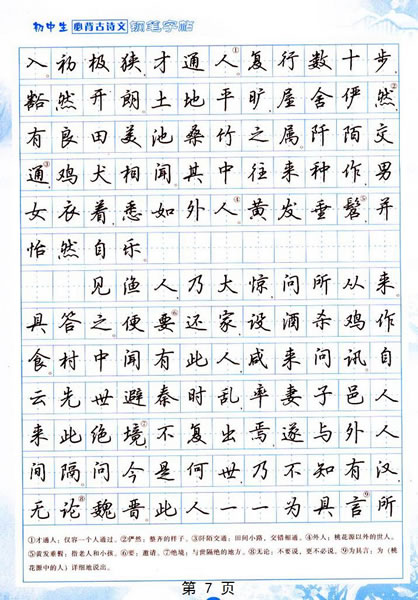 初中生 必背古诗文 钢笔字帖
入初极狭才通人①复行数十步
豁然开朗土地平旷屋舍俨然②
有良田美池桑竹之属阡陌交
通③鸡犬相闻其中往来种作男
女衣着悉如外人④黄发垂髫⑤并
怡然自乐
见渔人乃大惊问所从来
具答之便要⑥还家设酒杀鸡作
食村中闻有此人咸来问讯自
云先世避秦时乱率妻子邑人
来此绝境⑦不复出焉遂与外人
间隔问今是何世乃不知有汉
无论⑧魏晋此人一一为具言⑨所
①才通人：仅容一个人通过。②俨然：整齐的样子。③阡陌交通：田间小路，交错相通。④外人：桃花源以外的世人。
⑤黄发垂髫：指老人和小孩。⑥要：邀请。⑦绝境：与世隔绝的地方。⑧无论：不要说，更不必说。⑨为具言：为（桃
花源中的人）详细地说出。
第 7 页